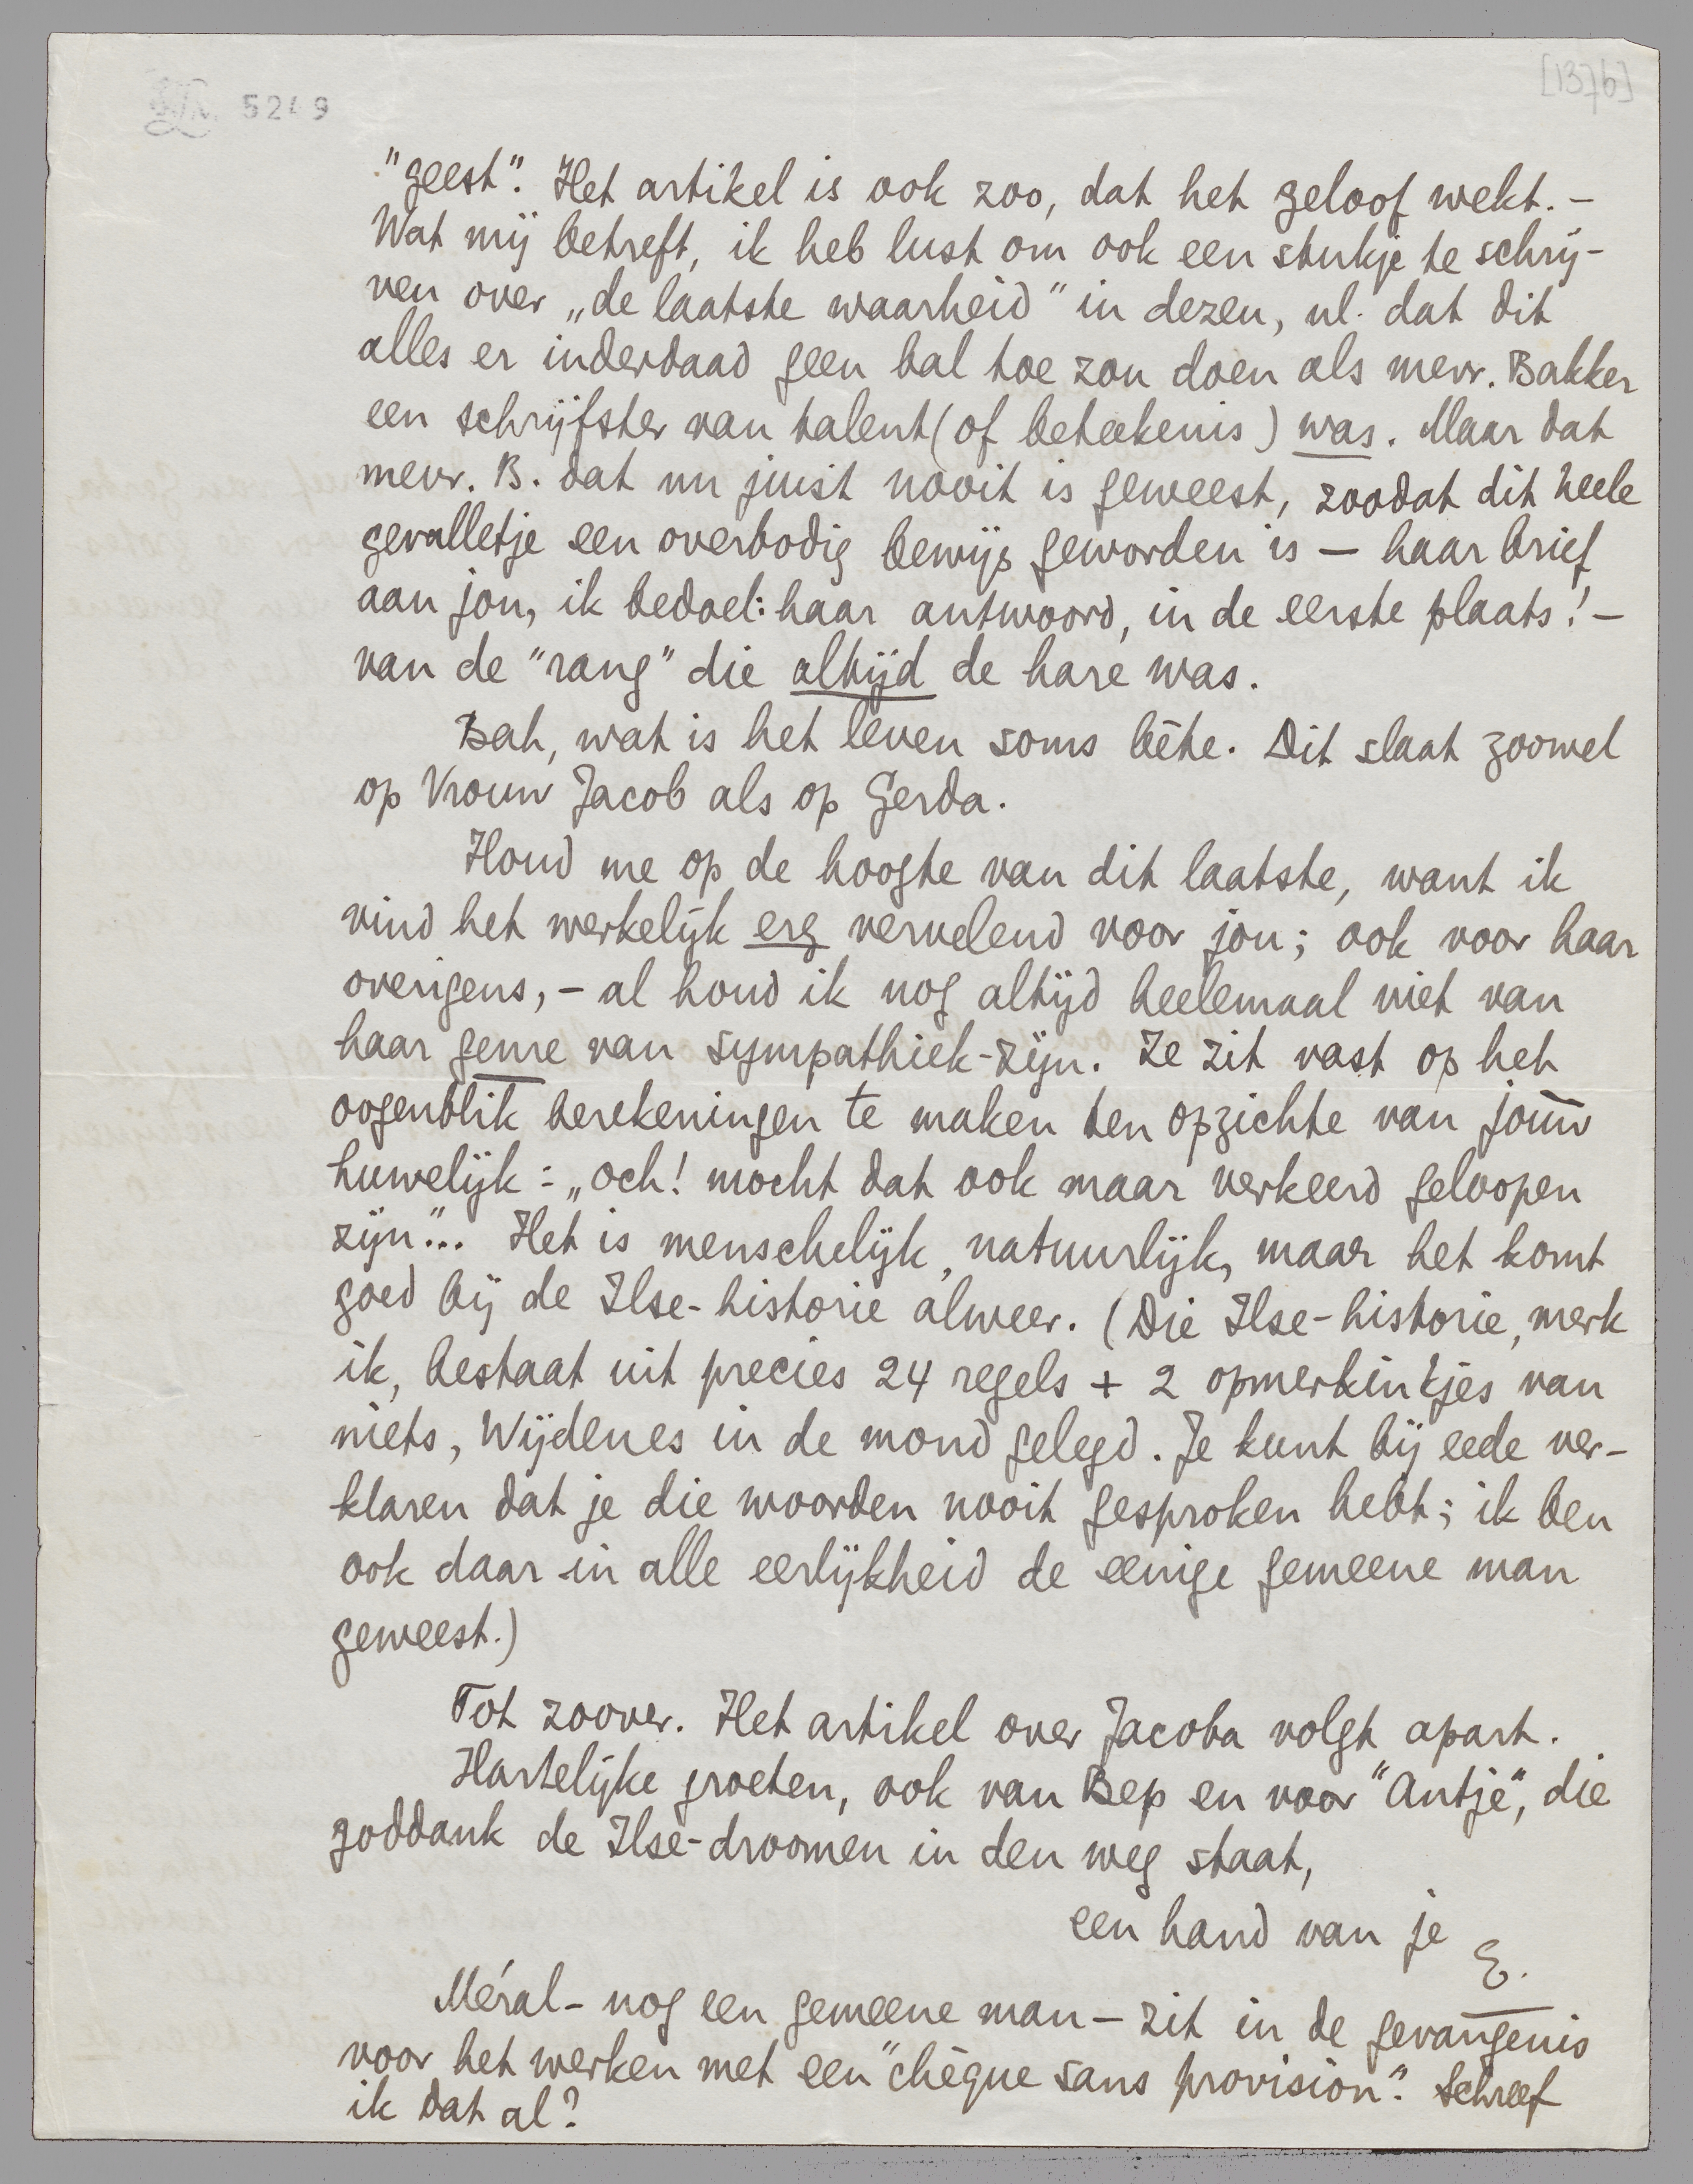 5249
[1376]
"geest". Het artikel is ook zoo, dat het geloof wekt. –
Wat mij betreft, ik heb lust om ook een stukje te schrij-
ven over „de laatste waarheid" in dezen, nl. dat dit
alles er inderdaad geen bal toe zou doen als mevr. Bakker
een schrijfster van talent (of beteekenis) was. Maar dat
mevr. B. dat nu juist nooit is geweest, zoodat dit heele
gevalletje een overbodig bewijs geworden is – haar brief
aan jou, ik bedoel: haar antwoord, in de eerste plaats! –
van de "rang" die altijd de hare was.
Bah, wat is het leven soms bête. Dit slaat zoowel
op Vrouw Jacob als op Gerda.
Houd me op de hoogte van dit laatste, want ik
vind het werkelijk erg vervelend voor jou; ook voor haar
overigens, – al houd ik nog altijd heelemaal niet van
haar genre van sympathiek-zijn. Ze zit vast op het
oogenblik berekeningen te maken ten opzichte van jouw
huwelijk: „och! mocht dat ook maar verkeerd geloopen
zijn"... Het is menschelijk, natuurlijk, maar het komt
goed bij de Ilse-historie alweer. (Die Ilse-historie, merk
ik, bestaat uit precies 24 regels + 2 opmerkinkjes van
niets, Wijdenes in de mond gelegd. Je kunt bij eede ver-
klaren dat je die woorden nooit gesproken hebt; ik ben
ook daar in alle eerlijkheid de eenige gemeene man
geweest.)
Tot zoover. Het artikel over Jacoba volgt apart.
Hartelijke groeten, ook van Bep en voor "Antje", die
goddank de Ilse-droomen in den weg staat,
een hand van je
E.
Méral – nog een gemeene man – zit in de gevangenis
voor het werken met een "chèque sans provision". Schreef
ik dat al?